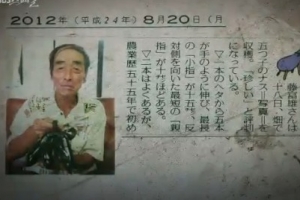 2012年(平成24年)8月20日(月
藤富雄さんは
十八日、畑で
五つ子のナス=写真=を
収穫。「珍しい」と評判
になっている。
▽一本のヘタから五本
が手のように伸び、最長
の「小指」が十五㌢、反
対側を向いた最短の「親
指」が十㌢ほどある。
▽二本はよくあるが、
農業歴五十五年で初め